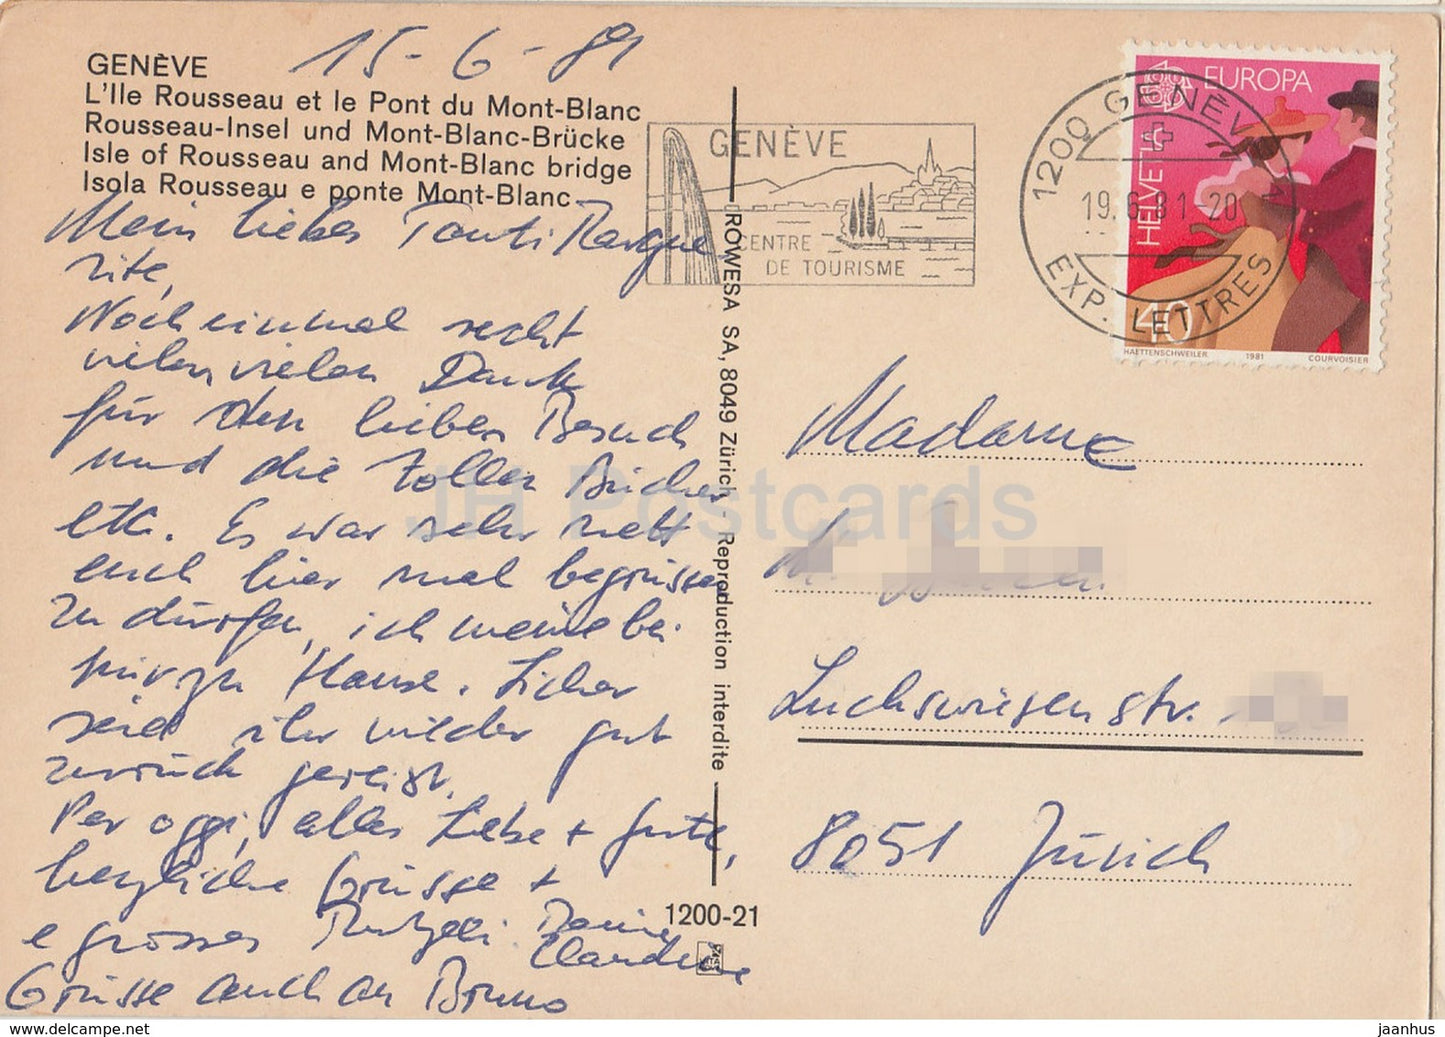 GENÈVE
L'Ile Rousseau et le Pont du Mont-Blanc
Rousseau-Insel und Mont-Blanc-Brücke
Isle of Rousseau and Mont-Blanc bridge
Isola Rousseau e ponte Mont-Blanc
15-6-81
Mein liebes Tanti Margue
rite,
Noch einmal recht
vielen, vielen Dank
für den lieben Besuch
und die tollen Bücher
etc. Es war sehr nett
euch hier mal begrüssen
zu dürfen, ich meine bei
mir zu Hause. Sicher
seid ihr wieder gut
zurück gereist.
Per oggi, alles Liebe + Gute,
herzliche Grüsse +
e grosses Claudine
Grüsse auch an Bruno
ROWESA SA, 8049 Zürich - Reproduction interdite
1200-21
GENÈVE
CENTRE
DE TOURISME
1200 GENÈVE
19.6.81-20
EXP. LETTRES
EUROPA
HELVETIA
40
HAETTENSCHWEILER 1981 COURVOISIER
Madame
Luchswiesenstr.
8051 Zürich
JH Postcards
jaanhus - delcampe.net